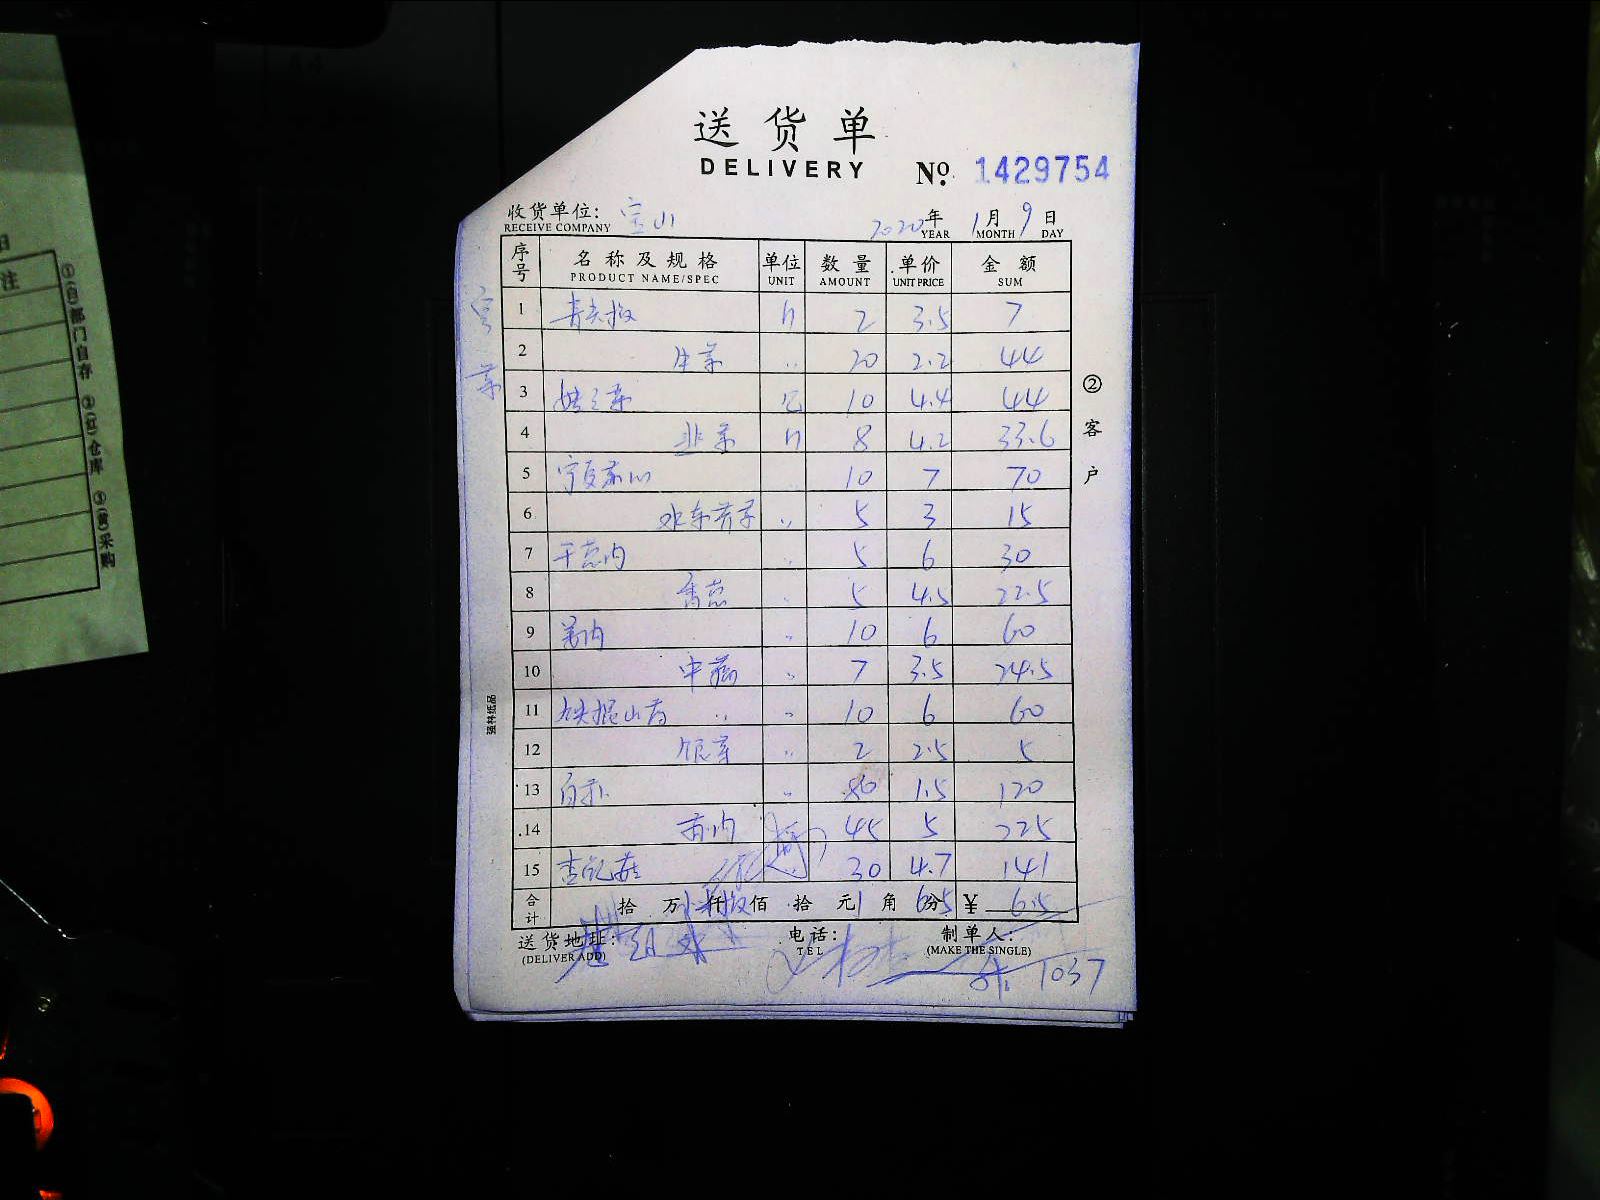 送货单
DELIVERY
№ 1429754
收货单位: 宝山 2020年 1月 9日
RECEIVE COMPANY YEAR MONTH DAY
序号 名称及规格 单位 数量 单价 金额
PRODUCT NAME/SPEC UNIT AMOUNT UNIT PRICE SUM
1 青尖椒 2 3.5 7
2 生菜 20 2.2 44
3 娃娃菜 10 4.4 44
4 韭菜 8 4.2 33.6
5 宁夏菜心 10 7 70
6 水东芥菜 5 3 15
7 干葱肉 5 6 30
8 香葱 5 4.5 22.5
9 姜肉 10 6 60
10 中芹 7 3.5 24.5
11 铁棍山药 10 6 60
12 银芽 2 2.5 5
13 80 1.5 120
14 45 5 225
15 杏鲍菇 30 4.7 141
合计 拾 万 仟 佰 拾 元 角 分 ¥
送货地址: 电话: 制单人:
(DELIVER ADD) TEL (MAKE THE SINGLE)
1037
②客户
强林纸品
注
①(白)部门自存 ②(红)仓库 ③(黄)采购